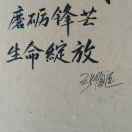 磨砺锋芒
生命綻放